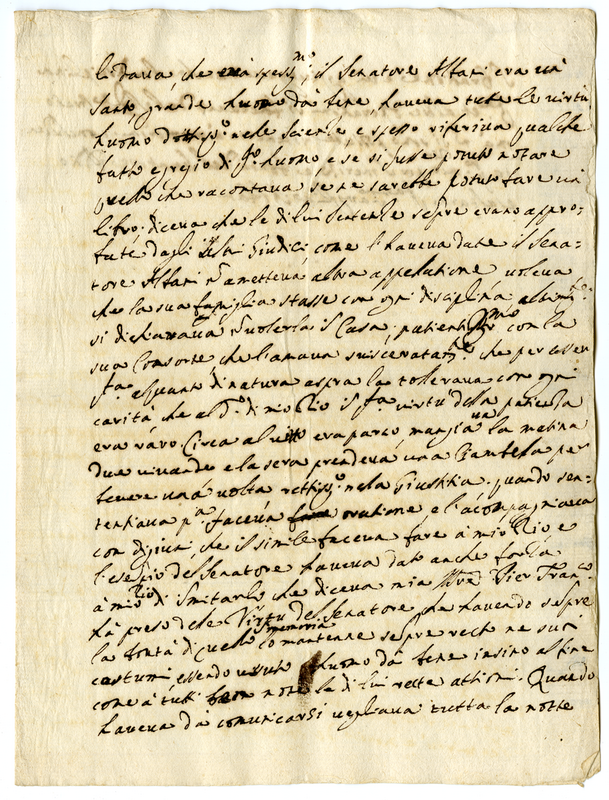 li dava, che era spess.mo, il Senatore Alfani era un
Santo, grande huomo da bene, haveva tutte le virtù
huomo dottiss.o nele scienze, e spesso riferiva qualche
fatto egregio di q.o huomo, e se si fusse potuto notare
quello che racontava se ne sarebbe potuto fare un
libro, diceva che le di lui sentenze sepre erano appro=
vate dagli Giudici, come l'haveva date il Sena=
tore Alfani, ametteva altra appelatione voleva
che la sua famiglia stasse con ogni disciplina altrim.e
si dichiarava volerla Casa, patientiss.mo con la
sua Consorte che l'amava sviscerata.te che per esser
q.ta alquanto di natura aspra la tollerava con ogni
carità, che a d.o di mio Zio il q.ta virtù dela patienza
era raro. Circa al vitto era parco, mangiava la matina
due vivande e la sera prendeva una Ciambela per
tenere una volta rettiss.o nela Giustitia. quando sen=
tentiava p.a faceva oratione e l'acompagniava
con digiuni, che il simile faceva fare à mio Zio e
l'esepio del Senatore haveva dato anche forza
à mio Zio d'imitarlo che diceva mia Pier Franc.o
hà preso dele Virtu del Senatore, che havendo sepre
la bontà di quello memoria lo mantenne sepre retto ne suoi
costumi essendo vissuto huomo da bene insino al fine
come à tutti note le di lui rette attioni. Quando
haveva da comunicarsi vegliava tutta la notte